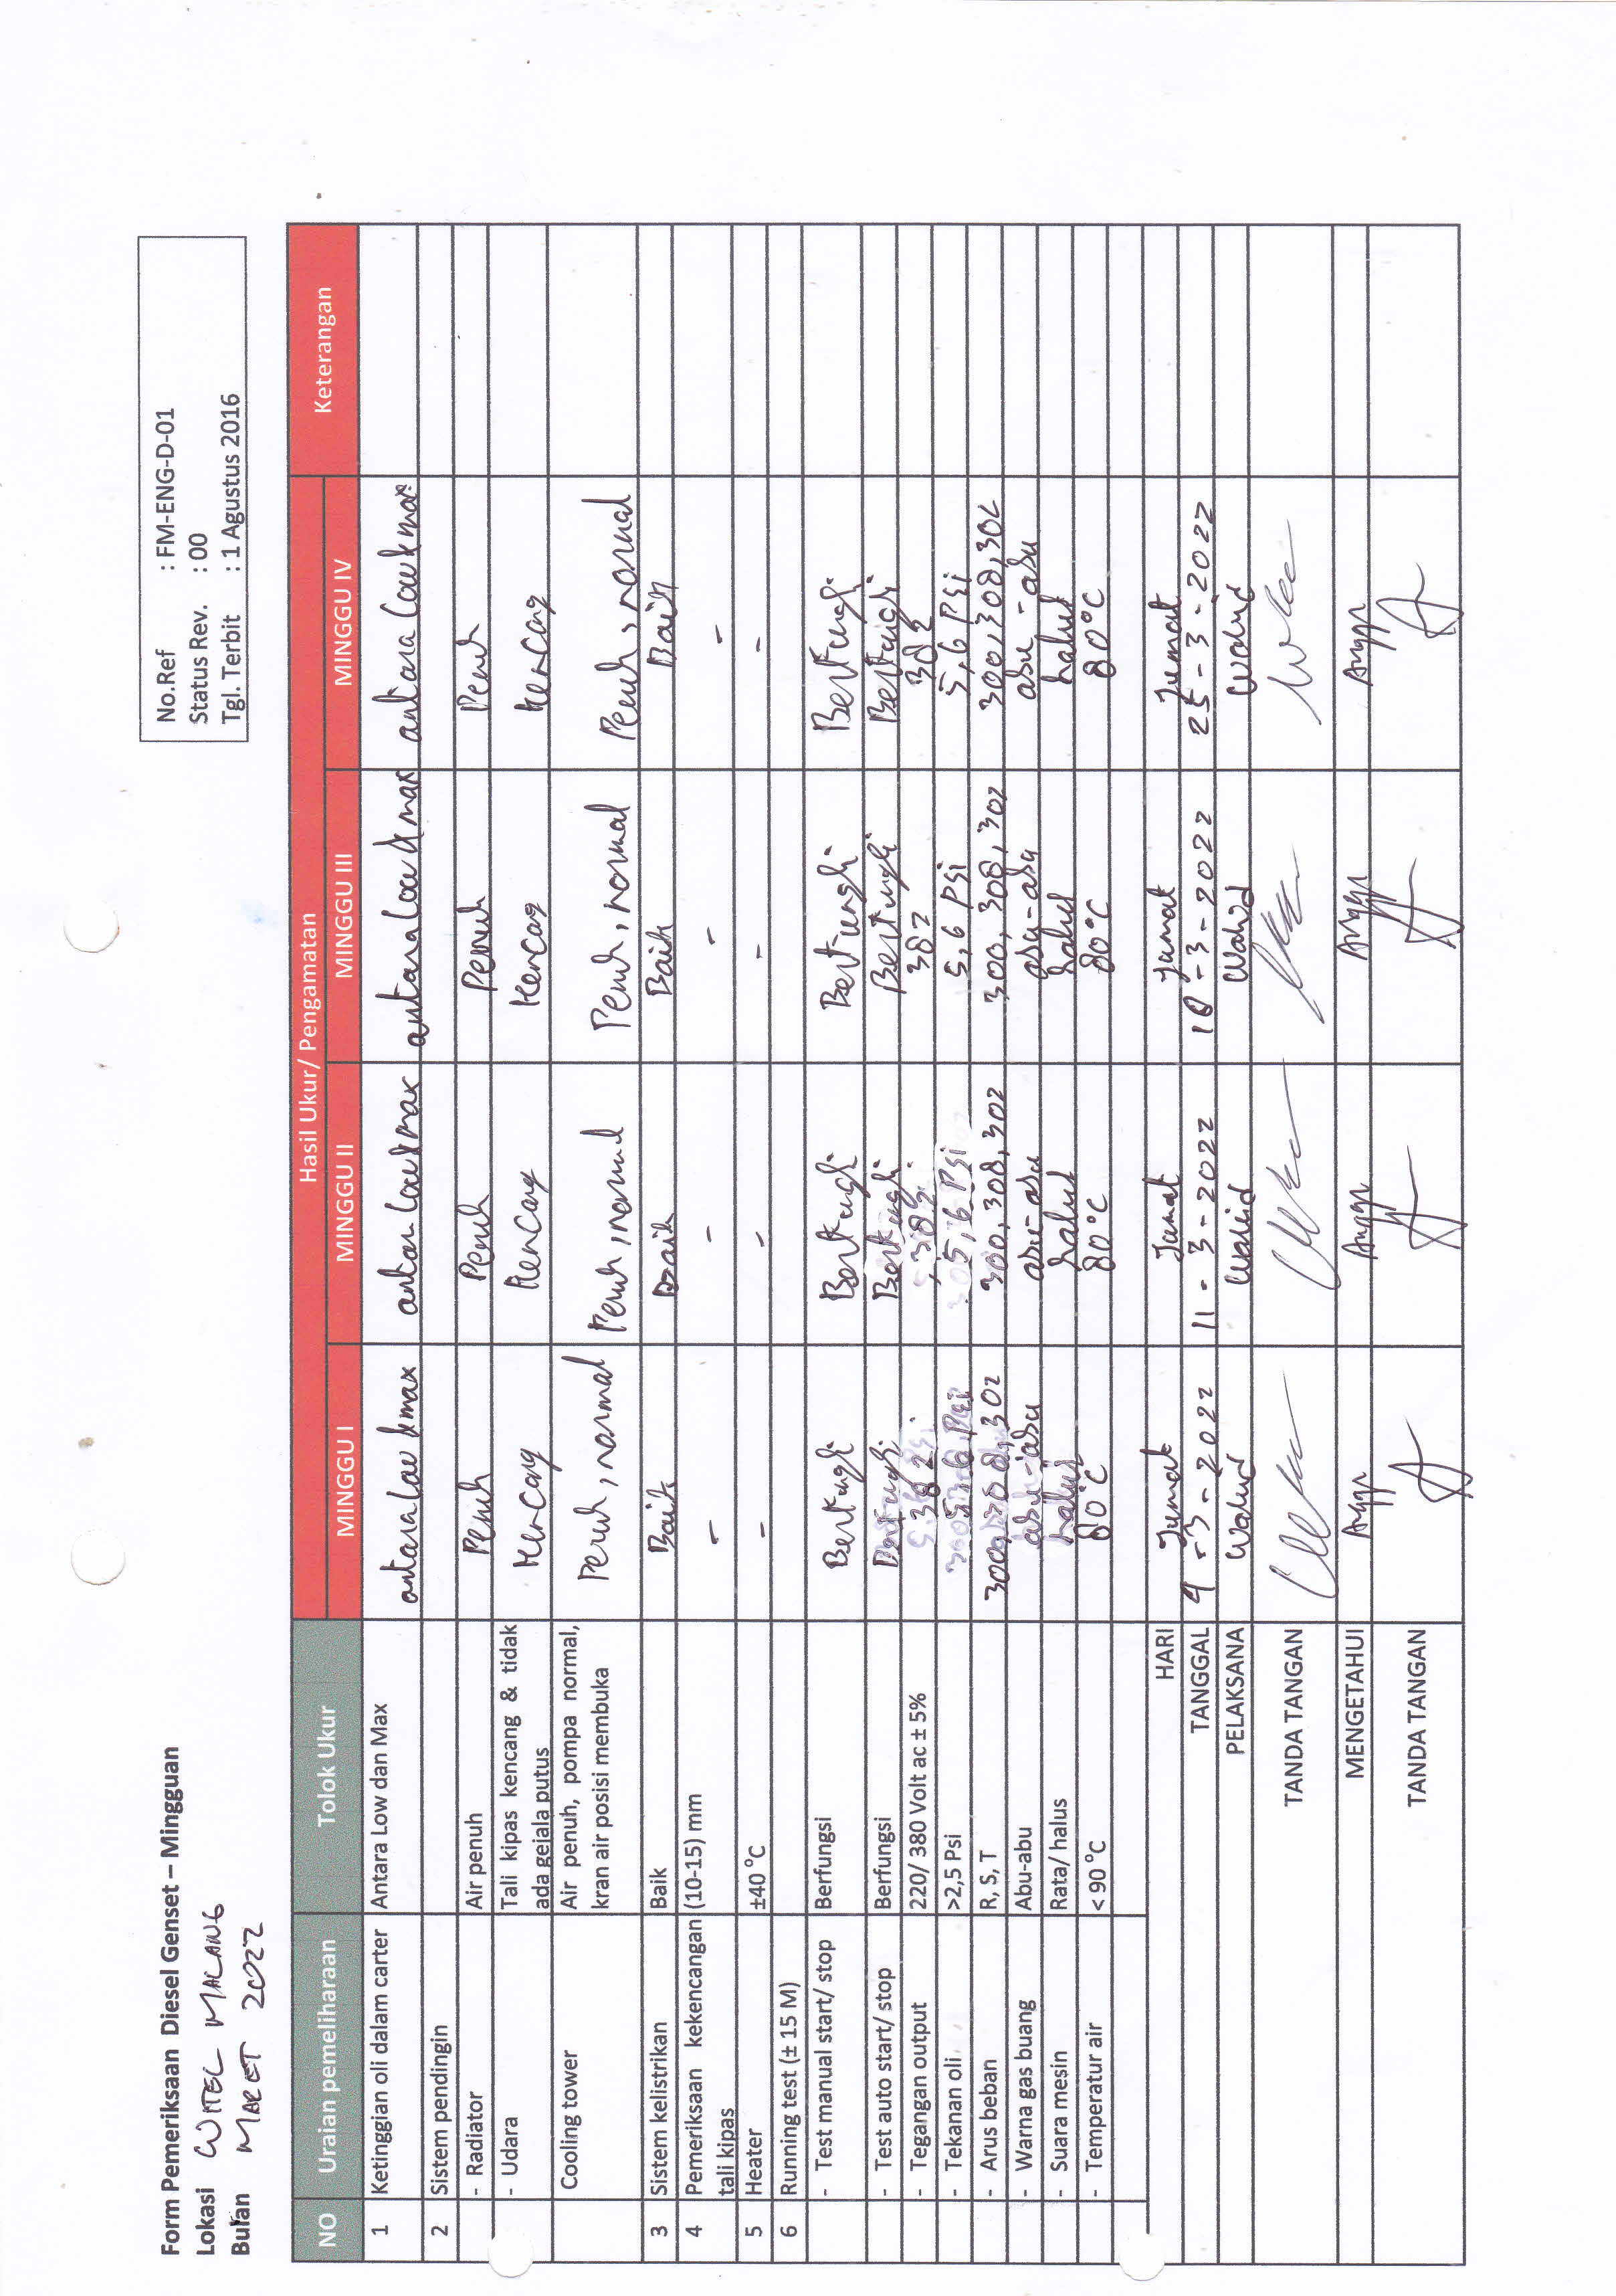 Form Pemeriksaan Diesel Genset – Mingguan
Lokasi WITEL MALANG
Bulan MARET 2022
No.Ref : FM-ENG-D-01
Status Rev. : 00
Tgl. Terbit : 1 Agustus 2016
NO Uraian pemeliharaan Tolok Ukur Hasil Ukur/ Pengamatan Keterangan
MINGGU I MINGGU II MINGGU III MINGGU IV
1 Ketinggian oli dalam carter Antara Low dan Max antara Low & max antara Low & max antara Low & max antara Low & max
2 Sistem pendingin
- Radiator Air penuh Penuh Penuh Penuh Penuh
- Udara Tali kipas kencang & tidak ada gejala putus Kencang Kencang Kencang Kencang
Cooling tower Air penuh, pompa normal, kran air posisi membuka Penuh, normal Penuh, normal Penuh, normal Penuh, normal
3 Sistem kelistrikan Baik Baik Baik Baik Baik
4 Pemeriksaan kekencangan tali kipas (10-15) mm - - - -
5 Heater ±40 °C - - - -
6 Running test (± 15 M)
- Test manual start/ stop Berfungsi Berfungsi Berfungsi Berfungsi Berfungsi
- Test auto start/ stop Berfungsi Berfungsi Berfungsi Berfungsi Berfungsi
- Tegangan output 220/ 380 Volt ac ± 5% 382 382 382 382
- Tekanan oli >2,5 Psi 5,6 Psi 5,6 Psi 5,6 Psi 5,6 Psi
- Arus beban R, S, T 300, 308, 302 300, 308, 302 300, 308, 302 300, 308, 302
- Warna gas buang Abu-abu abu-abu abu-abu abu-abu abu-abu
- Suara mesin Rata/ halus halus halus halus halus
- Temperatur air < 90 °C 80°C 80°C 80°C 80°C
HARI Jumat Jumat Jumat Jumat
TANGGAL 4-3-2022 11-3-2022 18-3-2022 25-3-2022
PELAKSANA Wahid Wahid Wahid Wahid
TANDA TANGAN
MENGETAHUI Anggi Anggi Anggi Anggi
TANDA TANGAN